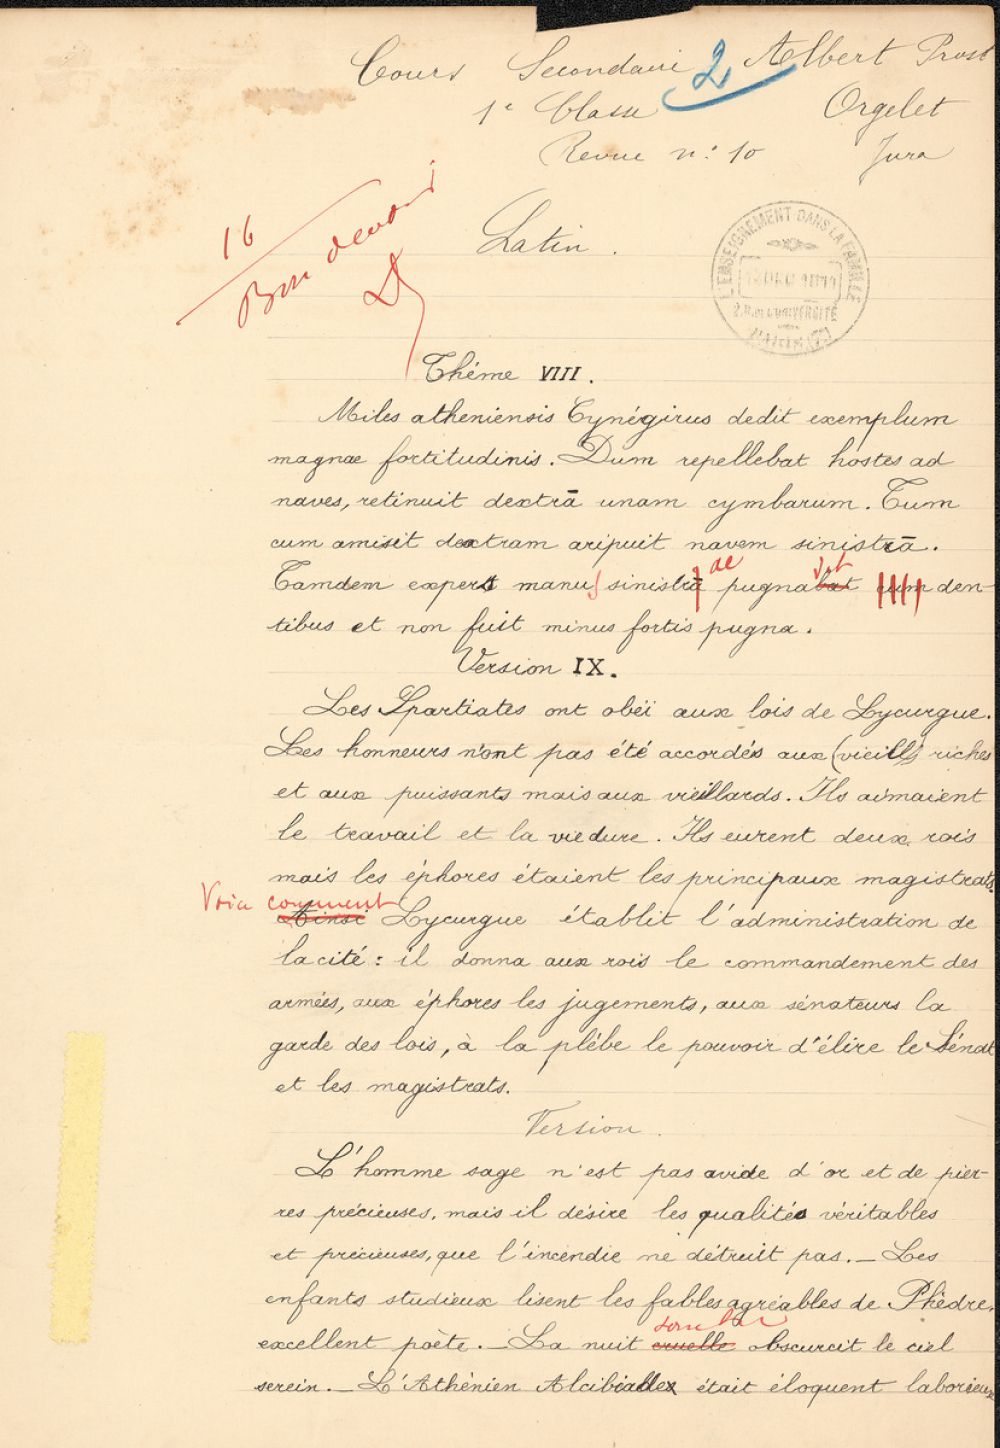 Cours Secondaire 2 Albert Prost
1e Classe Orgelet
Revue n: 10 Jura
16
Bon devoir
Latin.
L'ENSEIGNEMENT DANS LA FAMILLE
2, R. de L'UNIVERSITÉ
PARIS (7e)
Théme VIII.
Miles atheniensis Cynégirus dedit exemplum
magnae fortitudinis. Dum repellebat hostes ad
naves, retinuit dextrā unam cymbarum. Tum
cum amisit dextram aripuit navem sinistrā.
de vit
Tamdem expers manus sinistrā pugnabat cum den-
tibus et non fuit minus fortis pugna.
Version IX.
Les Spartiates ont obéi aux lois de Lycurgue.
Les honneurs n'ont pas été accordés aux (vieills) riches
et aux puissants mais aux vieillards. Ils aimaient
le travail et la vie dure. Ils eurent deux rois
mais les éphores étaient les principaux magistrats.
Voici comment
Ainsi Lycurgue établit l'administration de
la cité : il donna aux rois le commandement des
armées, aux éphores les jugements, aux sénateurs la
garde des lois, à la plébe le pouvoir d'élire le Sénat
et les magistrats.
Version.
L'homme sage n'est pas avide d'or et de pier-
res précieuses, mais il désire les qualités véritables
et précieuses, que l'incendie ne détruit pas. _ Les
enfants studieux lisent les fables agréables de Phèdre,
sombre
excellent poète. _ La nuit cruelle obscurcit le ciel
serein. _ L'Athénien Alcibiade était éloquent laborieux